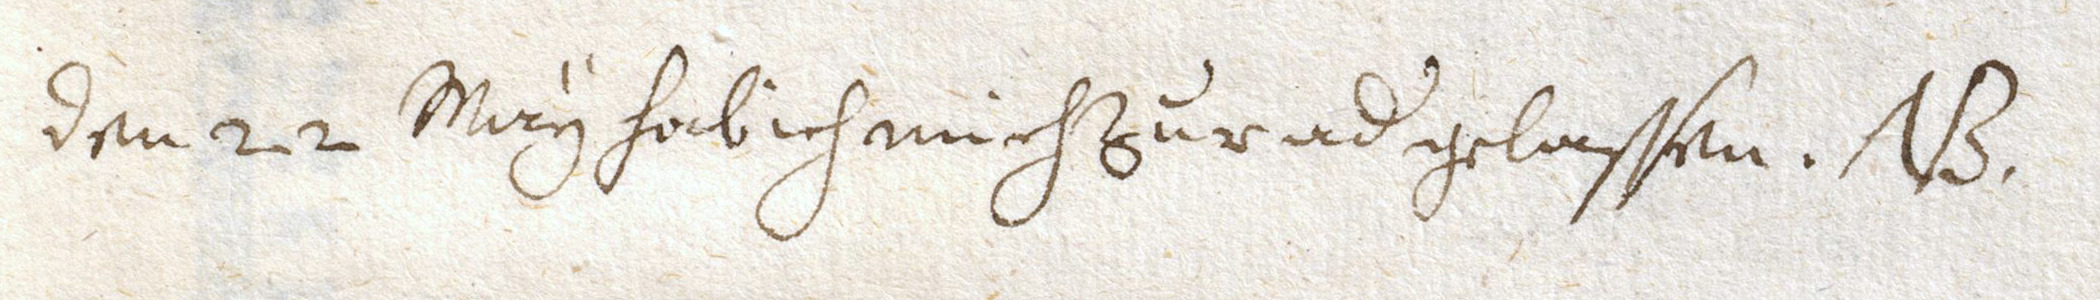 den 22 Maÿ hab ich mich Zur ad gelassen. NB.